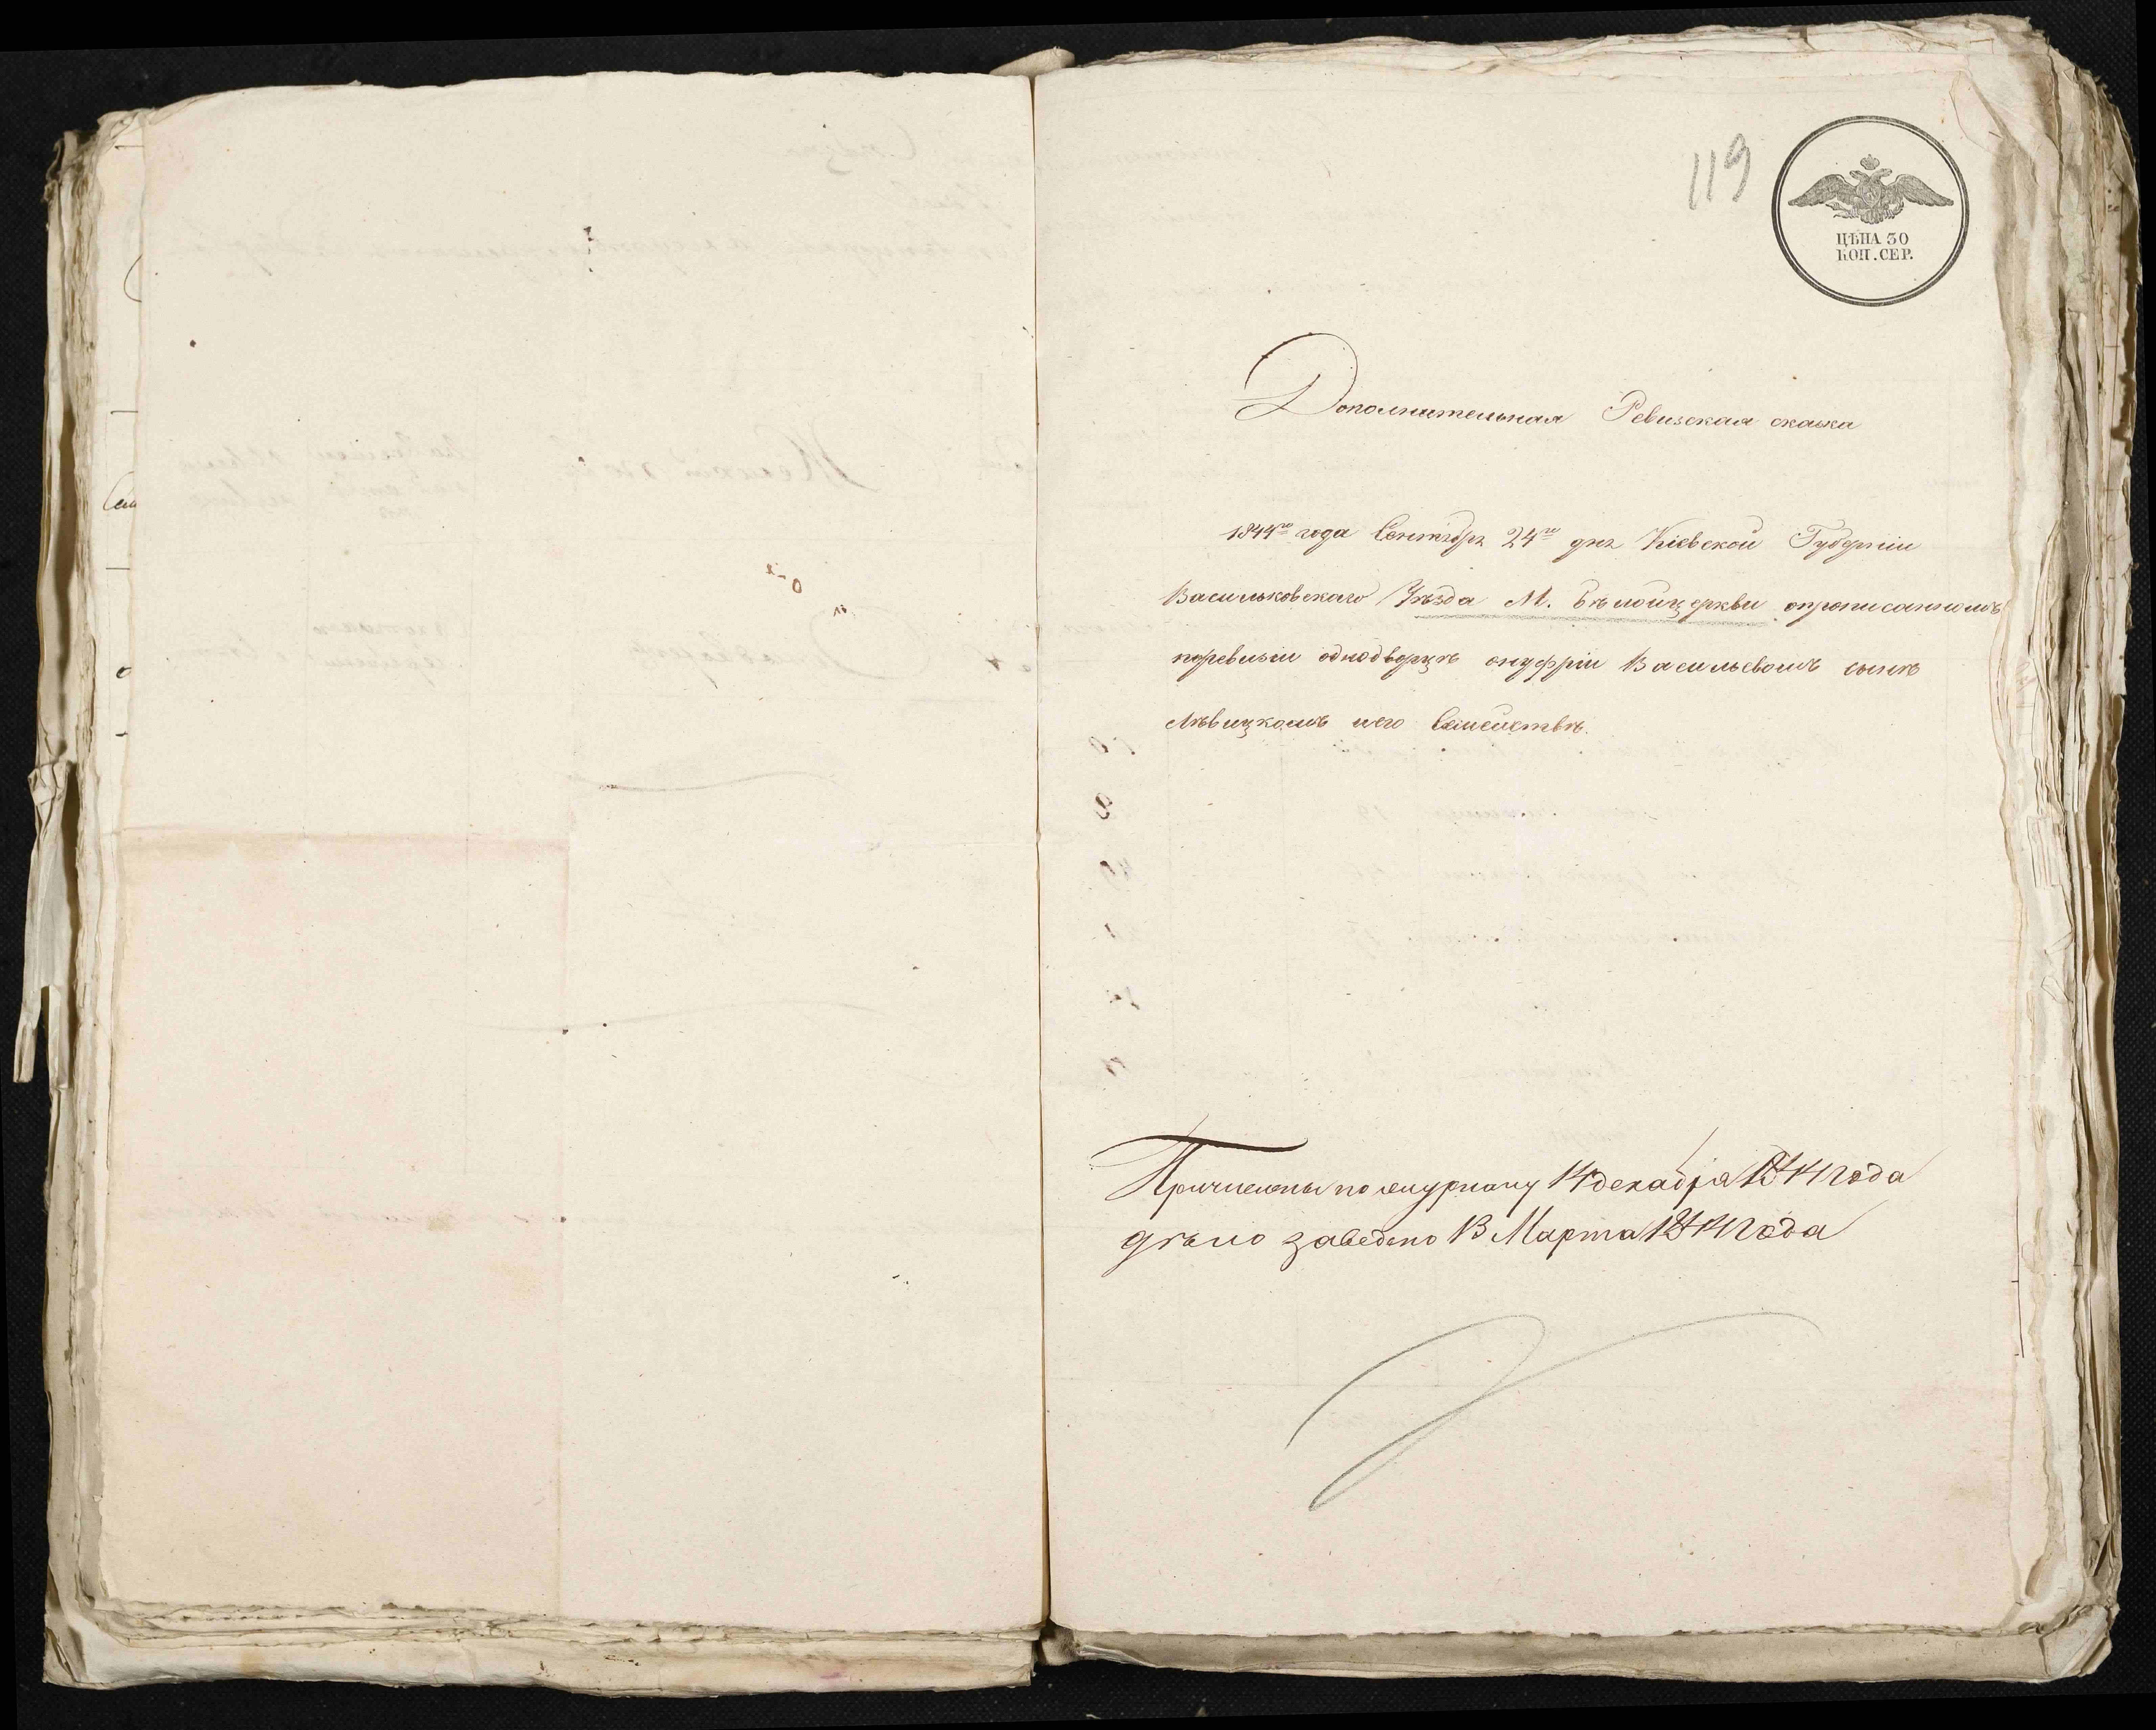 119
ЦѢНА 30
КОП. СЕР.
Дополнительная Ревизская сказка
1844го года Сентября 24го дня Кіевской Губерніи
Васильковскаго Уѣзда М. Бѣлойцеркви опрописанномъ
поревизіи однодворцѣ онуфріи Васильевомъ сынѣ
Лѣвицкомъ иего Семействѣ.
Причислены по журналу 14 декабря 1844 года
дѣло заведено 13 Марта 1844 года